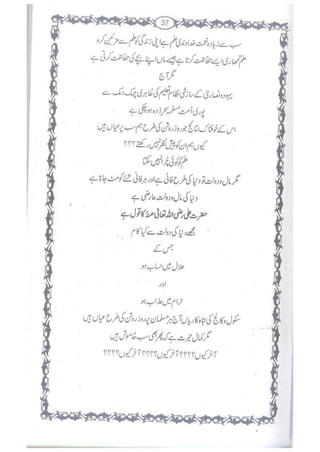 37
سب سے زیادہ نعمت خداوندی علم ہے اپنی زندگی کو علم سے مزین کرو
علم تمہاری ایسے حفاظت کرتا ہے جیسے ماں اپنے بچے کی حفاظت کرتی ہے
مگر آج
یہود و نصاریٰ کے سازشی نظام تعلیم کی ظاہری چمک دمک سے
پوری امت مسلمہ سحر زدہ ہو چکی ہے
اس کے خوفناک نتائج جو روز روشن کی طرح ہم سب پر عیاں ہیں
کیوں ہم ان کو پیش نظر نہیں رکھتے؟؟؟
علم کو کوئی چور نہیں سکتا
مگر مال و دولت تو دنیا کی طرح فانی ہے اور ہر فانی شئے کو مٹ جانا ہے
دنیا کی مال و دولت عارضی ہے
حضرت علی رضی اللہ تعالیٰ عنہ کا قول ہے
مجھے دنیا کی دولت سے کیا کام
جس کے
حلال میں حساب ہو
اور
حرام میں عذاب ہو
سکول و کالج کی تباہ کاریاں آج ہر مسلمان پر روز روشن کی طرح عیاں ہیں
مگر کمال حیرت ہے کہ پھر بھی سب خاموش ہیں
آخر کیوں؟؟؟؟ آخر کیوں؟؟؟؟ آخر کیوں؟؟؟؟